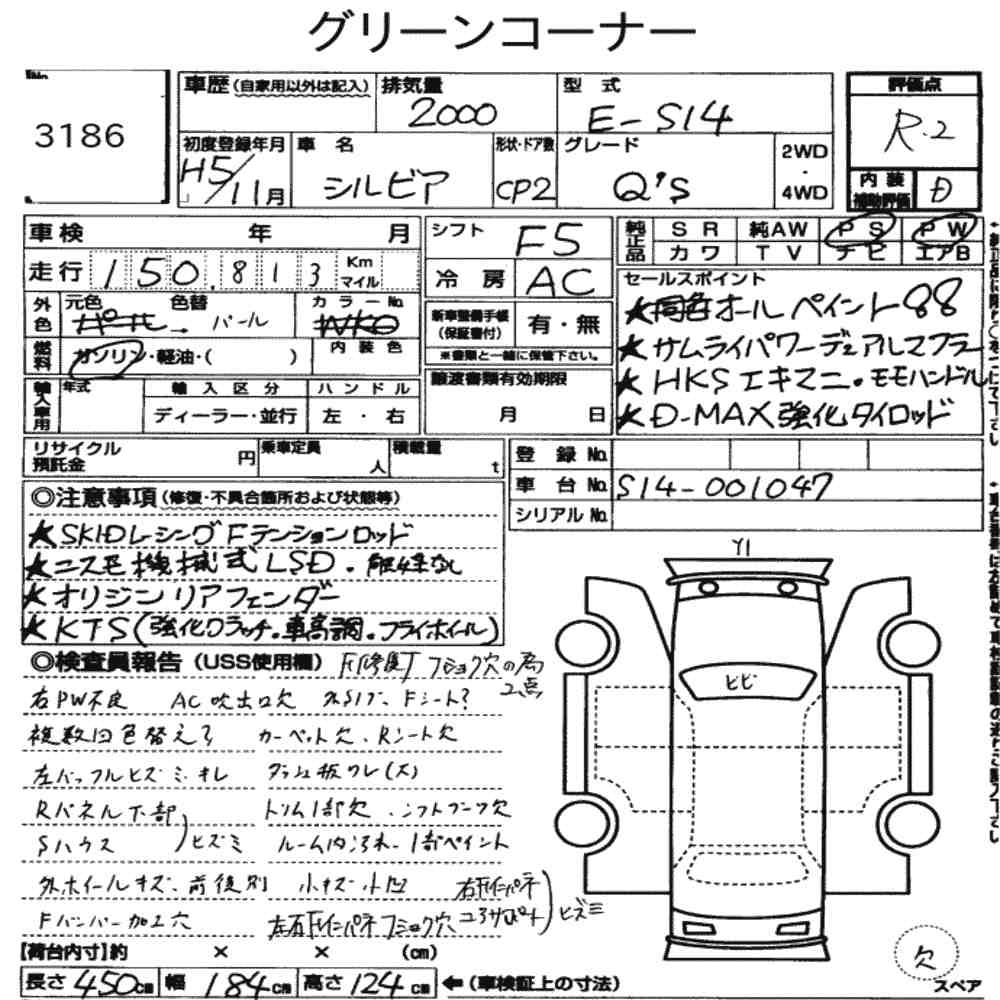 グリーンコーナー
No.
3186
車歴(自家用以外は記入)
排気量
2000
型式
E-S14
評価点
R.2
初度登録年月
H5/11月
車名
シルビア
形状・ドア数
CP2
グレード
Q'S
2WD
・
4WD
内装
補助評価
D
車検 年 月
シフト
F5
純正品
SR 純AW PS PW
カワ TV ナビ エアB
走行 150.813 Km
マイル
冷房 AC
セールスポイント
★同色オールペイント88
★サムライパワーデュアルマフラー
★HKSエキマニ・モモハンドル
★D-MAX強化タイロッド
外色
元色 色替
パール → パール
カラーNo.
WK0
新車整備手帳
(保証書付)
有・無
※書類と一緒に保管下さい。
燃料
ガソリン・軽油・( )
内装色
輸入車用
年式
輸入区分
ディーラー・並行
ハンドル
左・右
譲渡書類有効期限
月 日
リサイクル
預託金
円
乗車定員
人
積載量
t
登録No.
車台No. S14-001047
シリアルNo.
◎注意事項(修復・不具合箇所および状態等)
★SKIDレーシングFテンションロッド
★ニスモ機械式LSD・触媒なし
★オリジンリアフェンダー
★KTS(強化クラッチ・車高調・フライホイール)
◎検査員報告(USS使用欄)
右PW不良 AC吹出口欠
Fシート?
複数回色替え?
カーペット欠、Rシート欠
左バッフルヒズミ・キレ
ダッシュ板ワレ(大)
Rパネル下部
Sハウス
ヒズミ
トリム1部欠、シフトブーツ欠
ルーム内汚れ、1部ペイント
外ホイールキズ、前後別 小キズ小凹
Fバンパー加工穴
ヒズミ
Y1
ヒビ
欠
スペア
【荷台内寸】約 × × (cm)
長さ450cm 幅184cm 高さ124cm ←(車検証上の寸法)